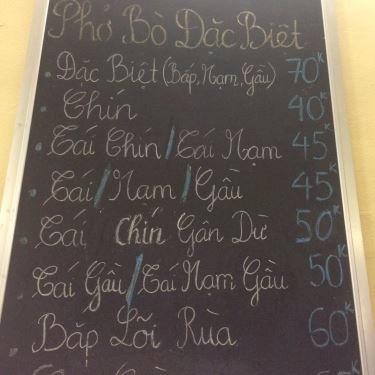 Phở Bò Đặc Biệt
Đặc Biệt (Bắp, Nạm, Gầu) 70K
Chín 40K
Tái Chín / Tái Nạm 45K
Tái / Nạm / Gầu 45K
Tái Chín Gân Dừ 50K
Tái Gầu / Tái Nạm Gầu 50K
Bắp Lõi Rùa 60K